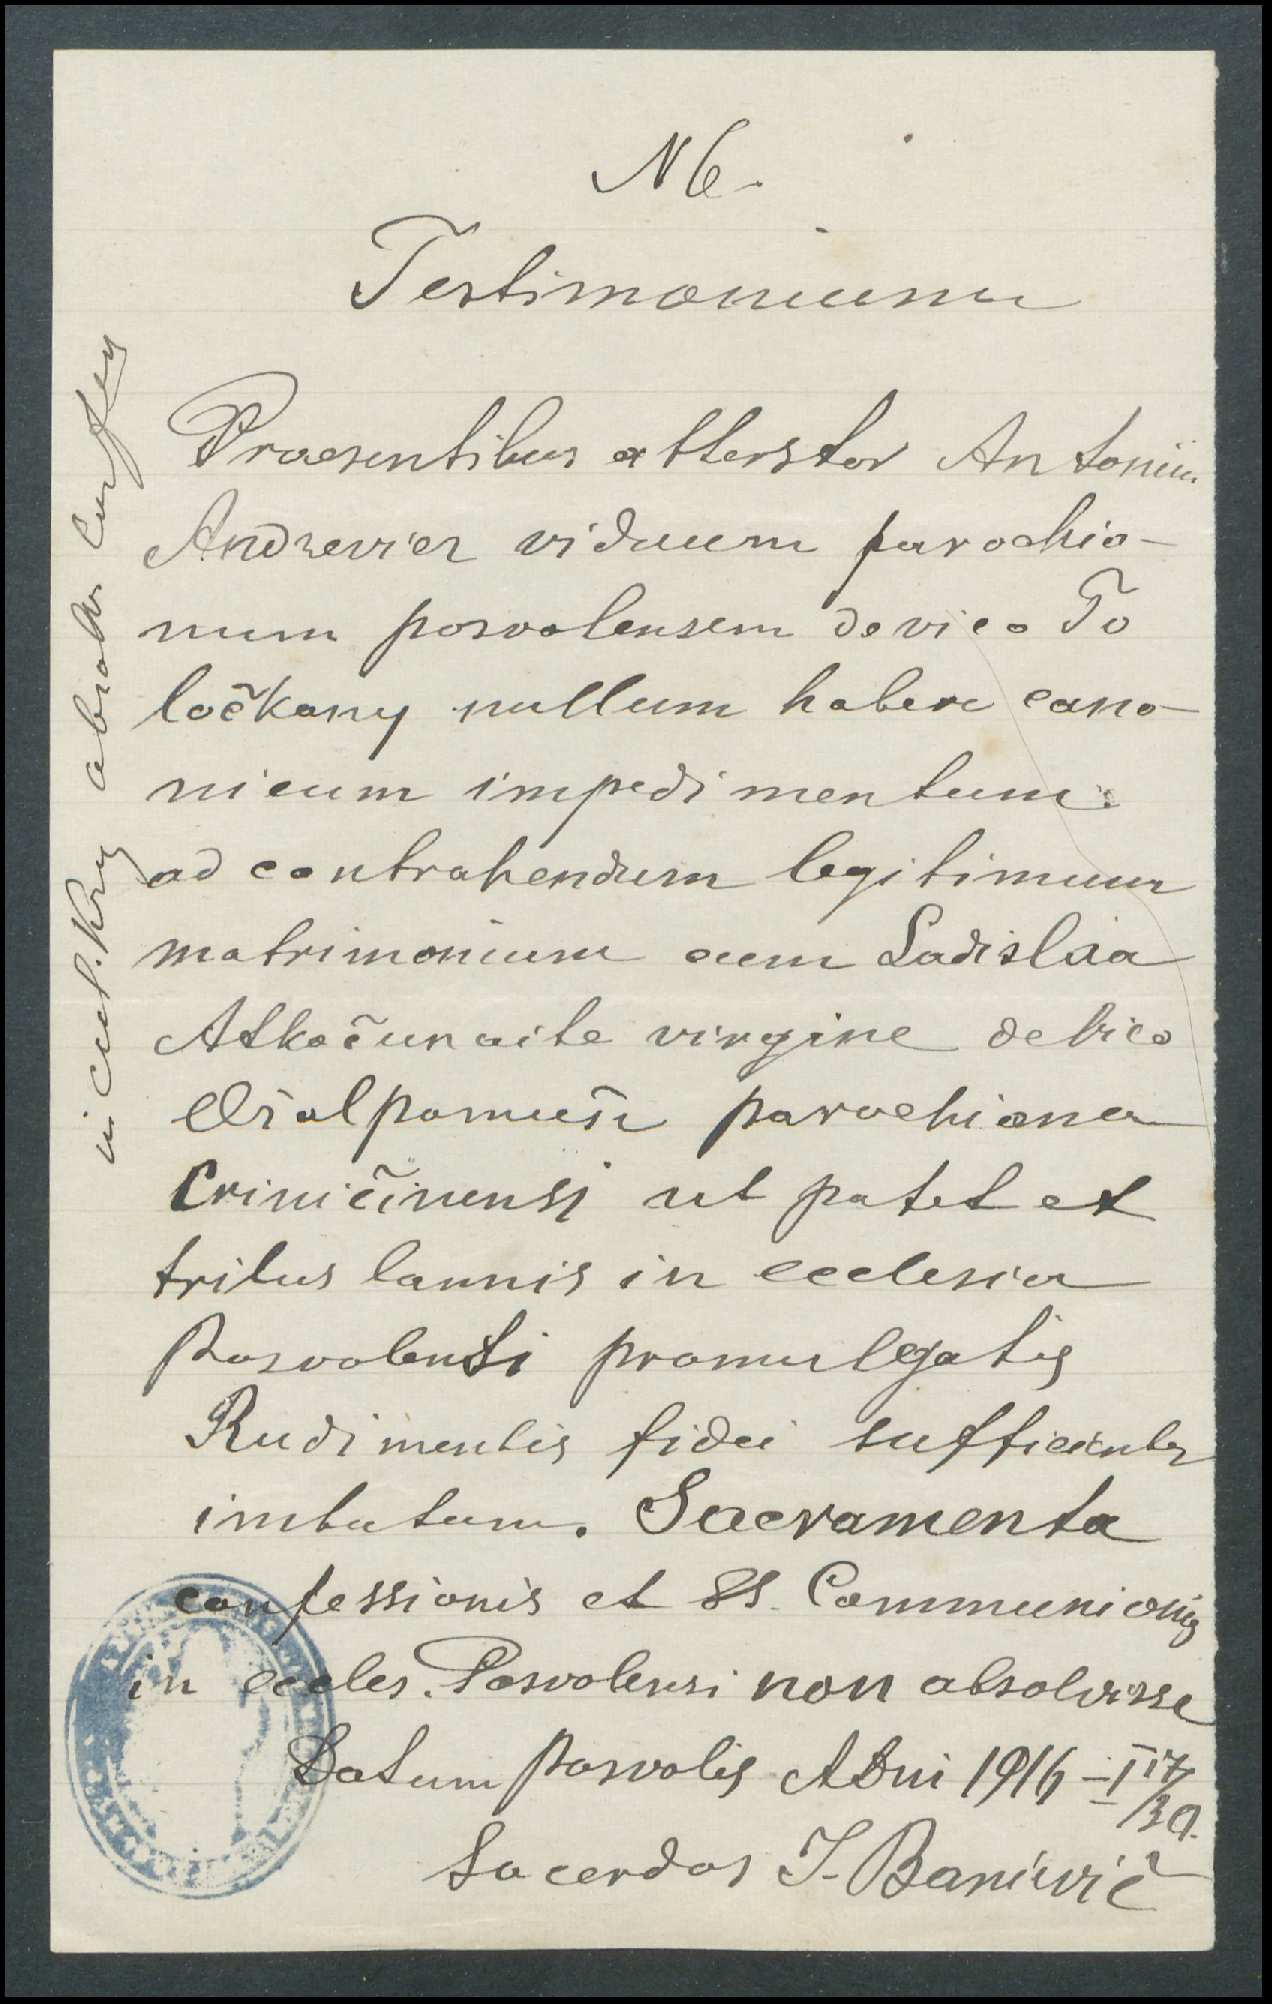 N 6.
Testimonium
Praesentibus attestor Antonium
Andrevicz viduum parochia-
num posvolensem de vico To
ločkany nullum habere cano-
nicum impedimentum
ad contrahendum legitimum
matrimonium cum Ladislaa
Atkočunaite virgine de vico
parochiana
Criničinensi ut patet et
tribus bannis in ecclesia
Posvolensi promulgatis
Rudimentis fidei sufficienter
imbutum. Sacramenta
confessionis et SS. Communionis
in eccles. Posvolensi non absolvisse
Datum Posvolis A Dni 1916 - I 17/30.
Sacerdos J. Banievič